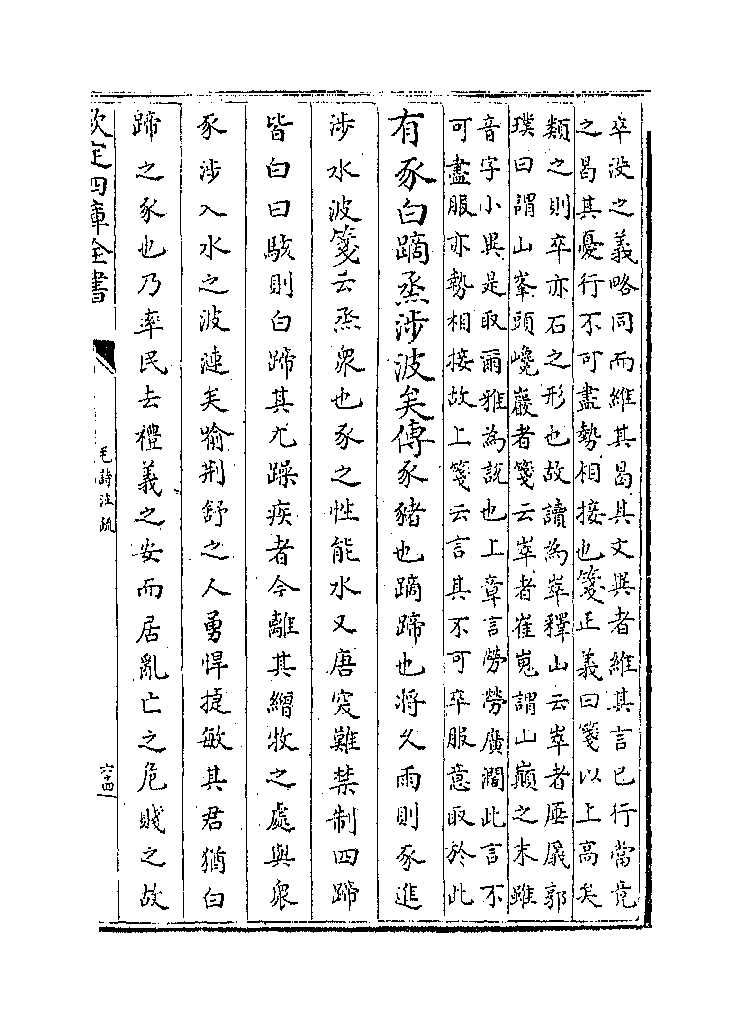 卒没之義略同而維其曷其文異者維其言已行當竟
之曷其憂行不可盡勢相接也箋正義曰箋以上高矣
類之則卒亦石之形也故讀為崒釋山云崒者厜㕒郭
璞曰謂山峯頭巉巖者箋云崒者崔嵬謂山巔之末雖
音字小異是取爾雅為說也上章言勞勞廣濶此言不
可盡服亦勢相接故上箋云言其不可卒服意取於此
有豕白蹢烝涉波矣傳豕豬也蹢蹄也將久雨則豕進
涉水波箋云烝衆也豕之性能水又唐突難禁制四蹄
皆白曰駭則白蹄其尤躁疾者今離其繒牧之處與衆
豕涉入水之波漣矣喻荆舒之人勇悍捷敏其君猶白
蹄之豕也乃率民去禮義之安而居亂亡之危賤之故
欽定四庫全書
毛詩注疏
六十四